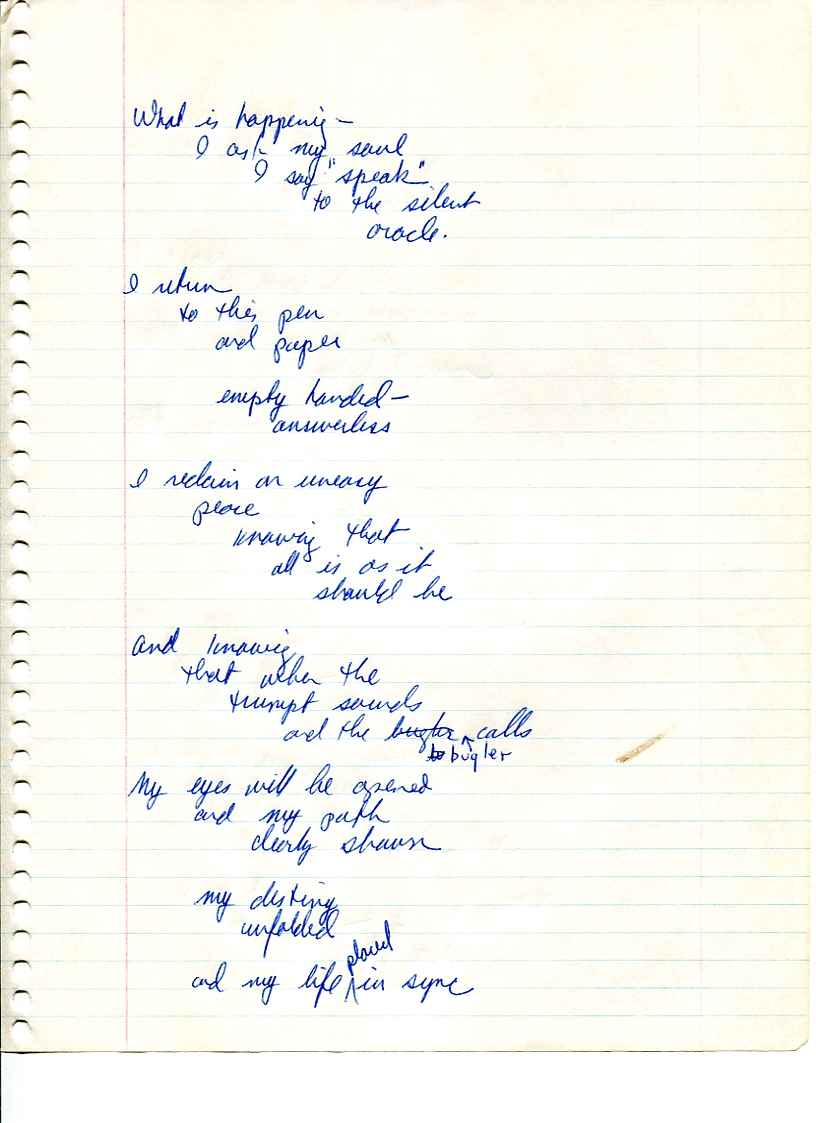 What is happening —
I ask my soul
I say "speak"
to the silent
oracle.
I return
to this pen
and paper
empty handed —
answerless
I reclaim an uneasy
peace
knowing that
all is as it
should be
and knowing
that when the
trumpt sounds
and the bugler calls
bugler
My eyes will be opened
and my path
clearly shown
my destiny
unfolded
placed
and my life in sync